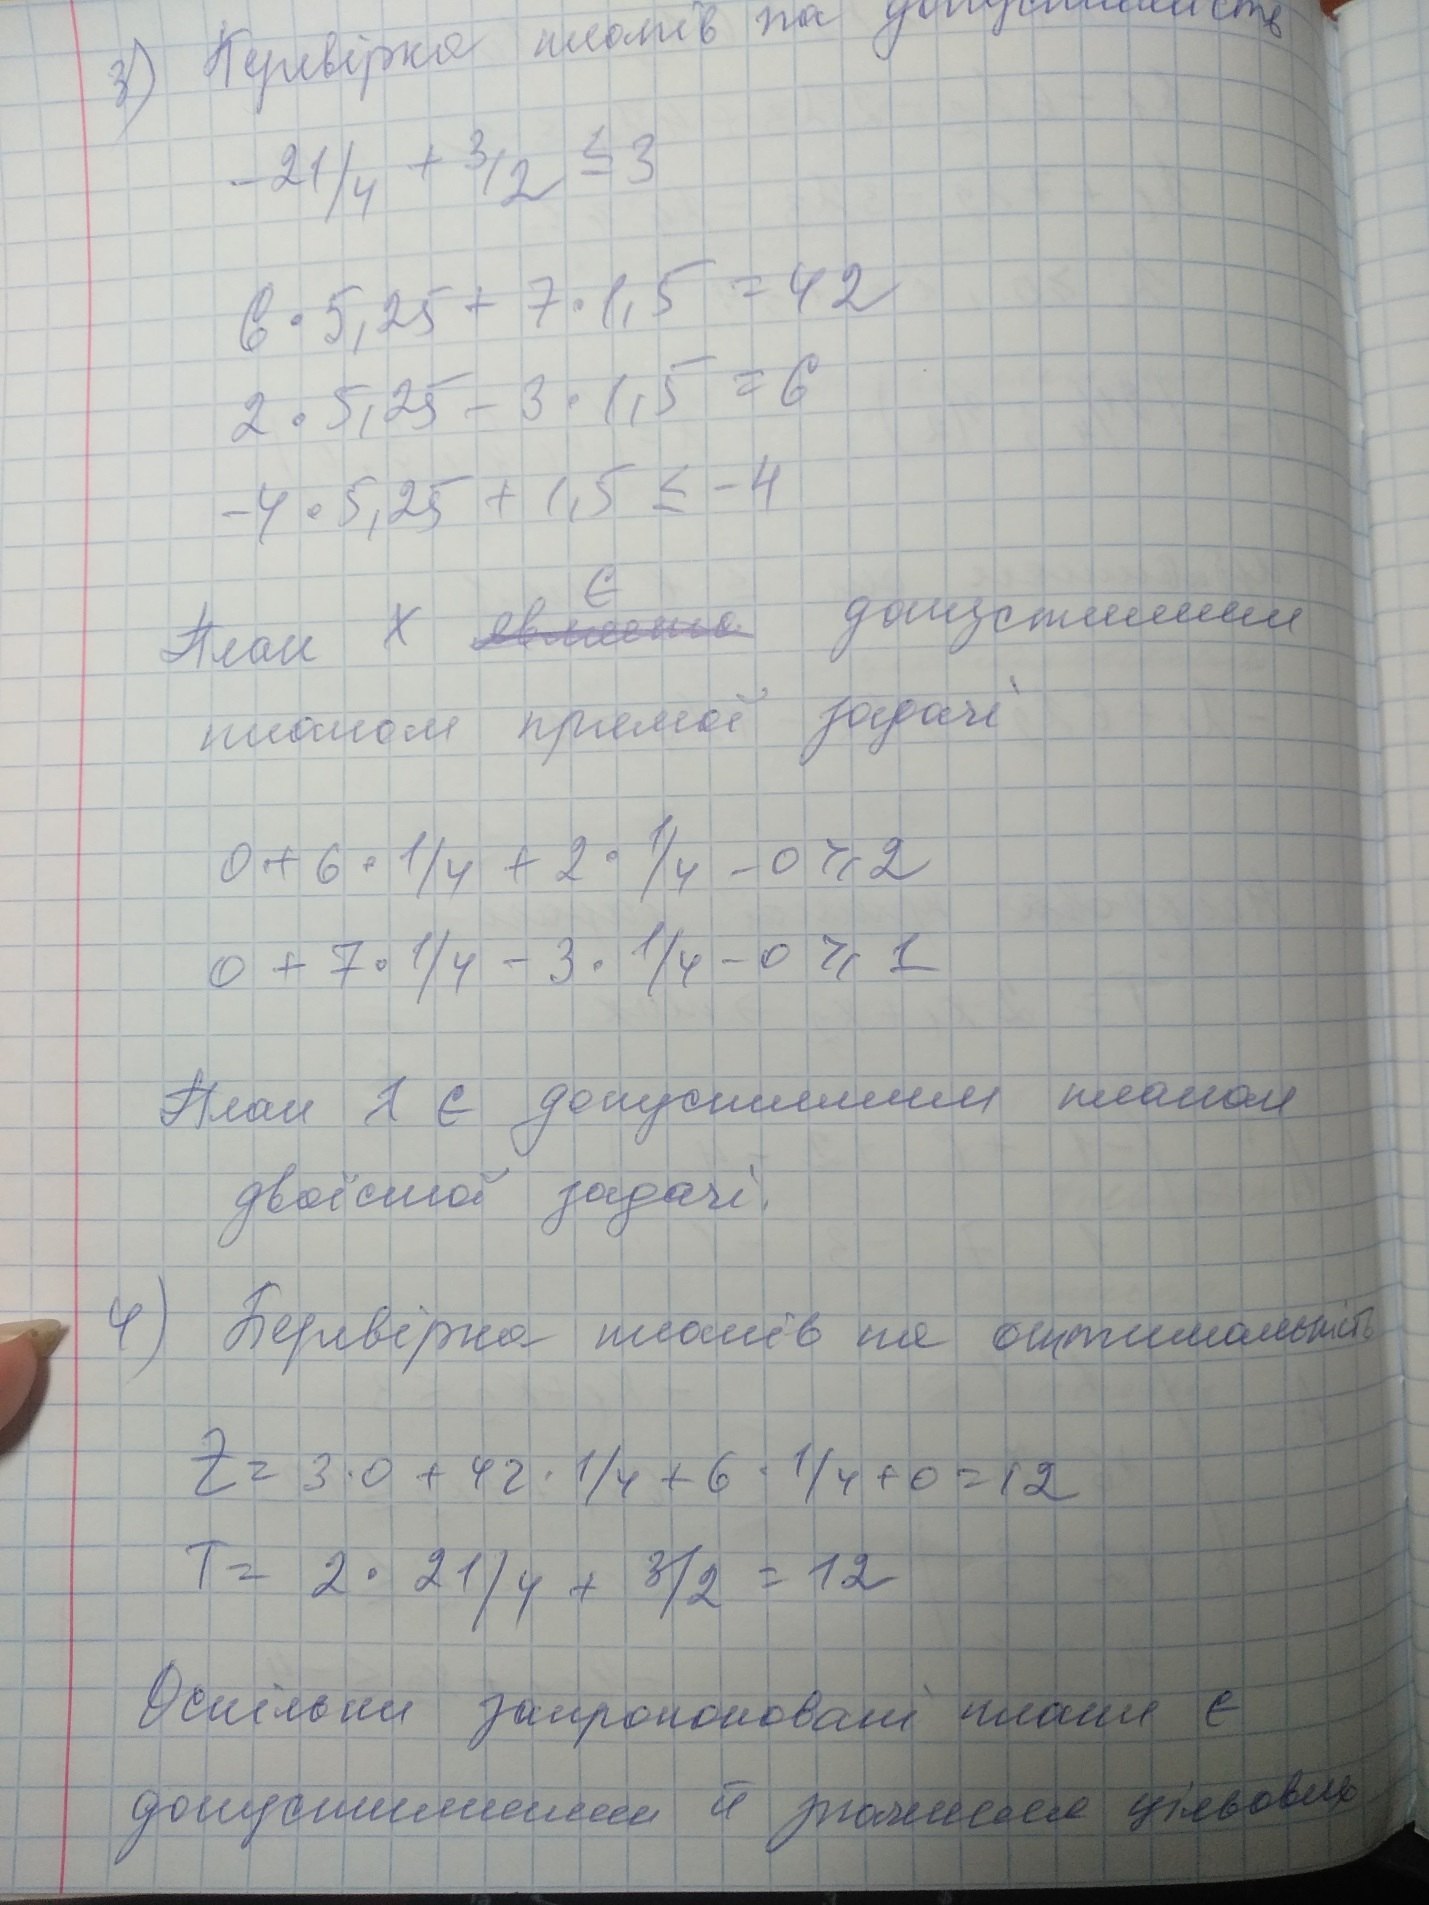 3) Перевірка планів на допустимість
-21/4 + 3/2 ≤ 3
6·5,25 + 7·1,5 = 42
2·5,25 - 3·1,5 = 6
-4·5,25 + 1,5 ≤ -4
План X є допустимим
планом прямої задачі
0 + 6·1/4 + 2·1/4 - 0 ≥ 2
0 + 7·1/4 - 3·1/4 - 0 ≥ 1
План λ є допустимим планом
двоїстої задачі.
4) Перевірка планів на оптимальність
Z = 3·0 + 42·1/4 + 6·1/4 + 0 = 12
T = 2·21/4 + 3/2 = 12
Оскільки запропоновані плани є
допустимими й значення цільових